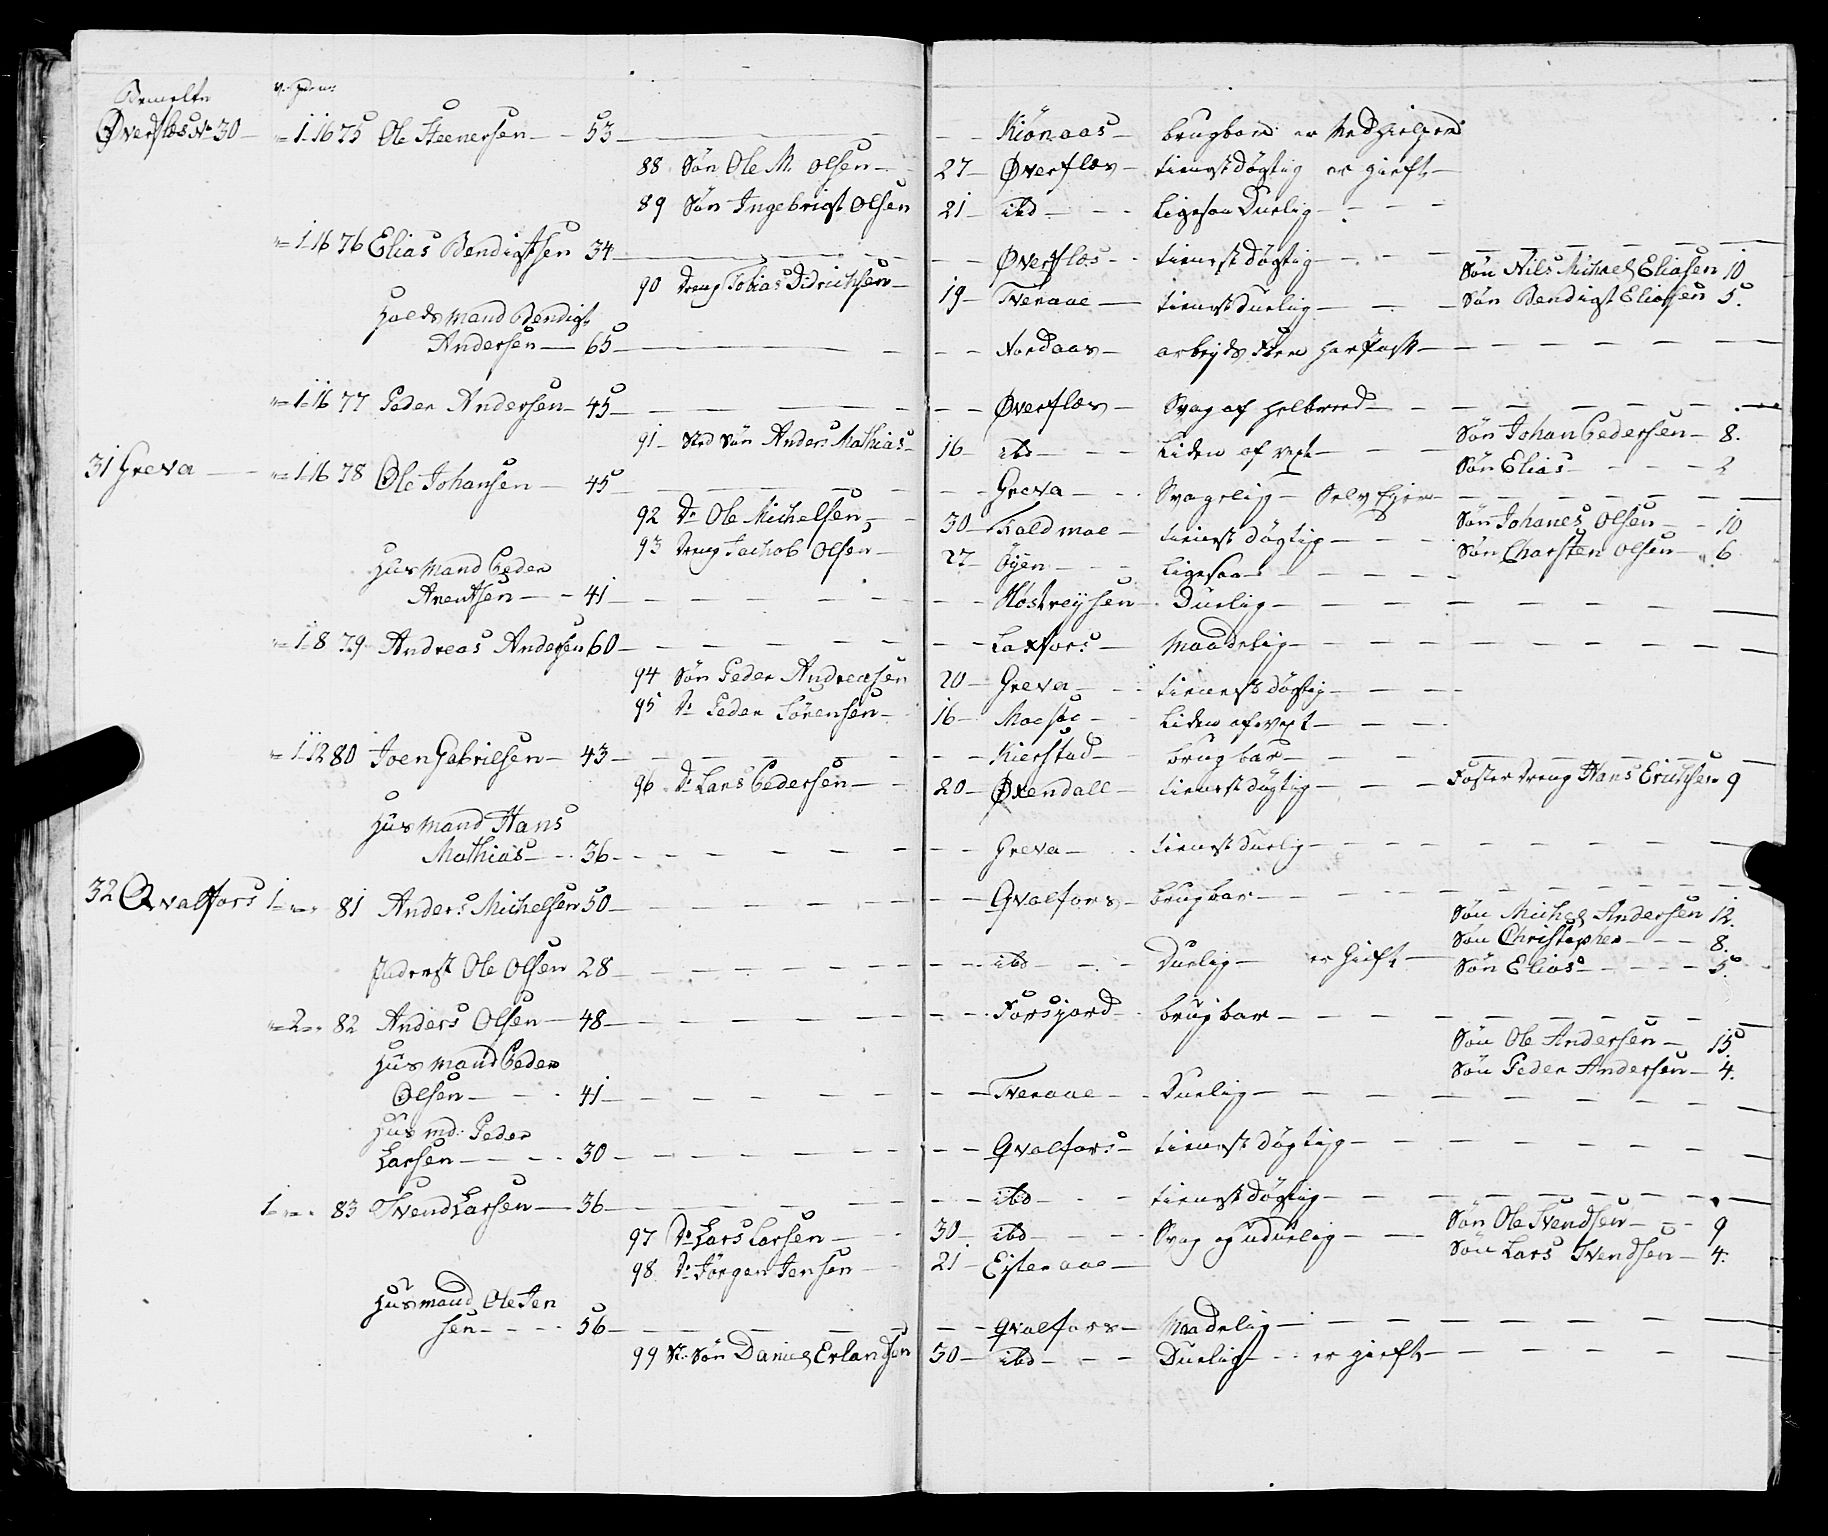 Bemelte
Øverflos No 30 — „ 1. 16 75 Ole Steenersen — 53 — — — Kiønaas — brugbar er Medhielper
88 Søn Ole M. Olsen — 27 — Øverflos — tienestdøgtig er gieft —
89 Søn Ingebrigt Olsen 21 — ibd — — Ligesaa Duelig — — —
„ 1 16 76 Elias Bendigtsen 34 — — — Øverflos — tienestdøgtig — — —
Søn Nils Michael Eliasen 10
90 Dreng Tobias Didrichsen — 19 — Tveraae — tienestduelig — — Søn Bendigt Eliasen 5.
Bendigt
Andersen — 65 — — — Nordaas — — — —
„ 1 16 77 Peder Andersen — 45 — — — Øverflos — Svag af helbred — — —
91 — Sted Søn Anders Mathias — 16 — ibd — — Liden af vext — — Søn Johan Pedersen — 8.
31 Greva — „ 1 16 78 Ole Johansen — 45 — — — Greva — Svagelig — Selv Ejer —
Søn Elias — — — 2
92 Dr Ole Michelsen — 30 — Foldmoe — tienestdøgtig — — Søn Johanes Olsen — 10
93 Dreng Jachob Olsen — 27 — Øyen — — Ligesaa — — Søn Charsten Olsen — 6
Husmand Peder
Arentsen — 41 — — — Duelig — — —
„ 1 8 79 Andreas Andersen 60 — — — Laxfors — Maadelig — — —
94 Søn Peder Andreasen 20 — Greva — — tienestdøgtig — — —
95 Dr Peder Sørensen — 16 — — Liden af vext — — —
„ 1 12 80 Joen Gabrielsen — 43 — — — Kierstad — brugbar — — —
96 Dr Lars Pedersen — 20 — Øxendall — tienestdøgtig — — Foster dreng Hans Erichsen 9
Husmand Hans
Mathias — 36 — — — Greva — tienestduelig — — —
32 Qvalfors 1 „ 81 Anders Michelsen 50 — — — Qvalfors — brugbar — — —
Søn Michel Andersen 12.
Søn Christopher — — 8.
Inderst Ole Olsen 28 — — — ibd — — Duelig — er Gieft — Søn Elias — — — 5.
„ 2 „ 82 Anders Olsen — 48 — — — Forsjord — brugbar — — —
Søn Ole Andersen — 15
Husmand Peder
Søn Peder Andersen — 4.
Olsen — — 41 — — — Tveraae — Duelig — — —
Husmd. Peder
Larsen — — 30 — — — Qvalfors — tienestdøgtig — — —
1 „ 83 Svend Larsen — 36 — — — ibd — — tienestdøgtig — — —
97 Dr Lars Larsen — 30 — ibd — — Svag og uduelig — Søn Ole Svendsen — 9
98 Dr Jørgen Jensen 21 — Eiteraae — Søn Lars Svendsen — 4.
Husmand Ole Jen
sen — — 56 — — — Qvalfors — Maadelig — — —
99 St. Søn Daniel Erlandsen 30 — ibd — — Duelig — er gieft — — —